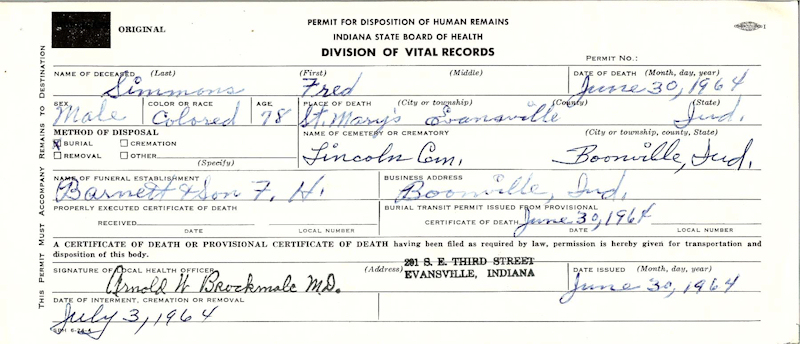 ORIGINAL
PERMIT FOR DISPOSITION OF HUMAN REMAINS
INDIANA STATE BOARD OF HEALTH
DIVISION OF VITAL RECORDS
PERMIT NO.:
THIS PERMIT MUST ACCOMPANY REMAINS TO DESTINATION
NAME OF DECEASED (Last) (First) (Middle) DATE OF DEATH (Month, day, year)
Simmons Fred June 30, 1964
SEX COLOR OR RACE AGE PLACE OF DEATH (City or township) (County) (State)
Male Colored 78 St. Mary's Evansville Ind.
METHOD OF DISPOSAL NAME OF CEMETERY OR CREMATORY (City or township, county, State)
X BURIAL CREMATION
REMOVAL OTHER
(Specify)
Lincoln Cem. Boonville, Ind.
NAME OF FUNERAL ESTABLISHMENT BUSINESS ADDRESS
Barnett & Son F. H. Boonville, Ind.
PROPERLY EXECUTED CERTIFICATE OF DEATH BURIAL TRANSIT PERMIT ISSUED FROM PROVISIONAL
RECEIVED CERTIFICATE OF DEATH June 30, 1964
DATE LOCAL NUMBER DATE LOCAL NUMBER
A CERTIFICATE OF DEATH OR PROVISIONAL CERTIFICATE OF DEATH having been filed as required by law, permission is hereby given for transportation and
disposition of this body.
SIGNATURE OF LOCAL HEALTH OFFICER (Address) 201 S. E. THIRD STREET DATE ISSUED (Month, day, year)
EVANSVILLE, INDIANA
Arnold W Brockmole M.D. June 30, 1964
DATE OF INTERMENT, CREMATION OR REMOVAL
July 3, 1964